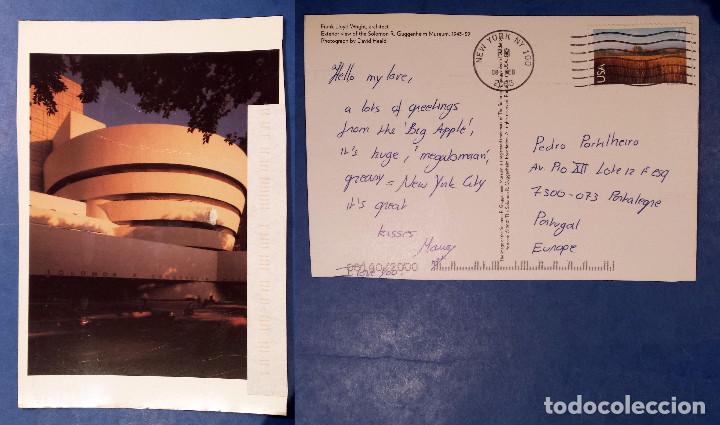 SOLOMON R.
Frank Lloyd Wright, architect
Exterior view of the Solomon R. Guggenheim Museum, 1943-59
Photograph by David Heald
NEW YORK NY 100
2003
USA
Hello my love,
a lots of greetings
from the 'Big Apple',
it's huge, 'megaloman',
greasy = New York City
it's great
kisses
I love you!
Pedro Portilheiro
Av. Pio XII Lote 12 F esq
7300-073 Portalegre
Portugal
Europe
todocoleccion.net